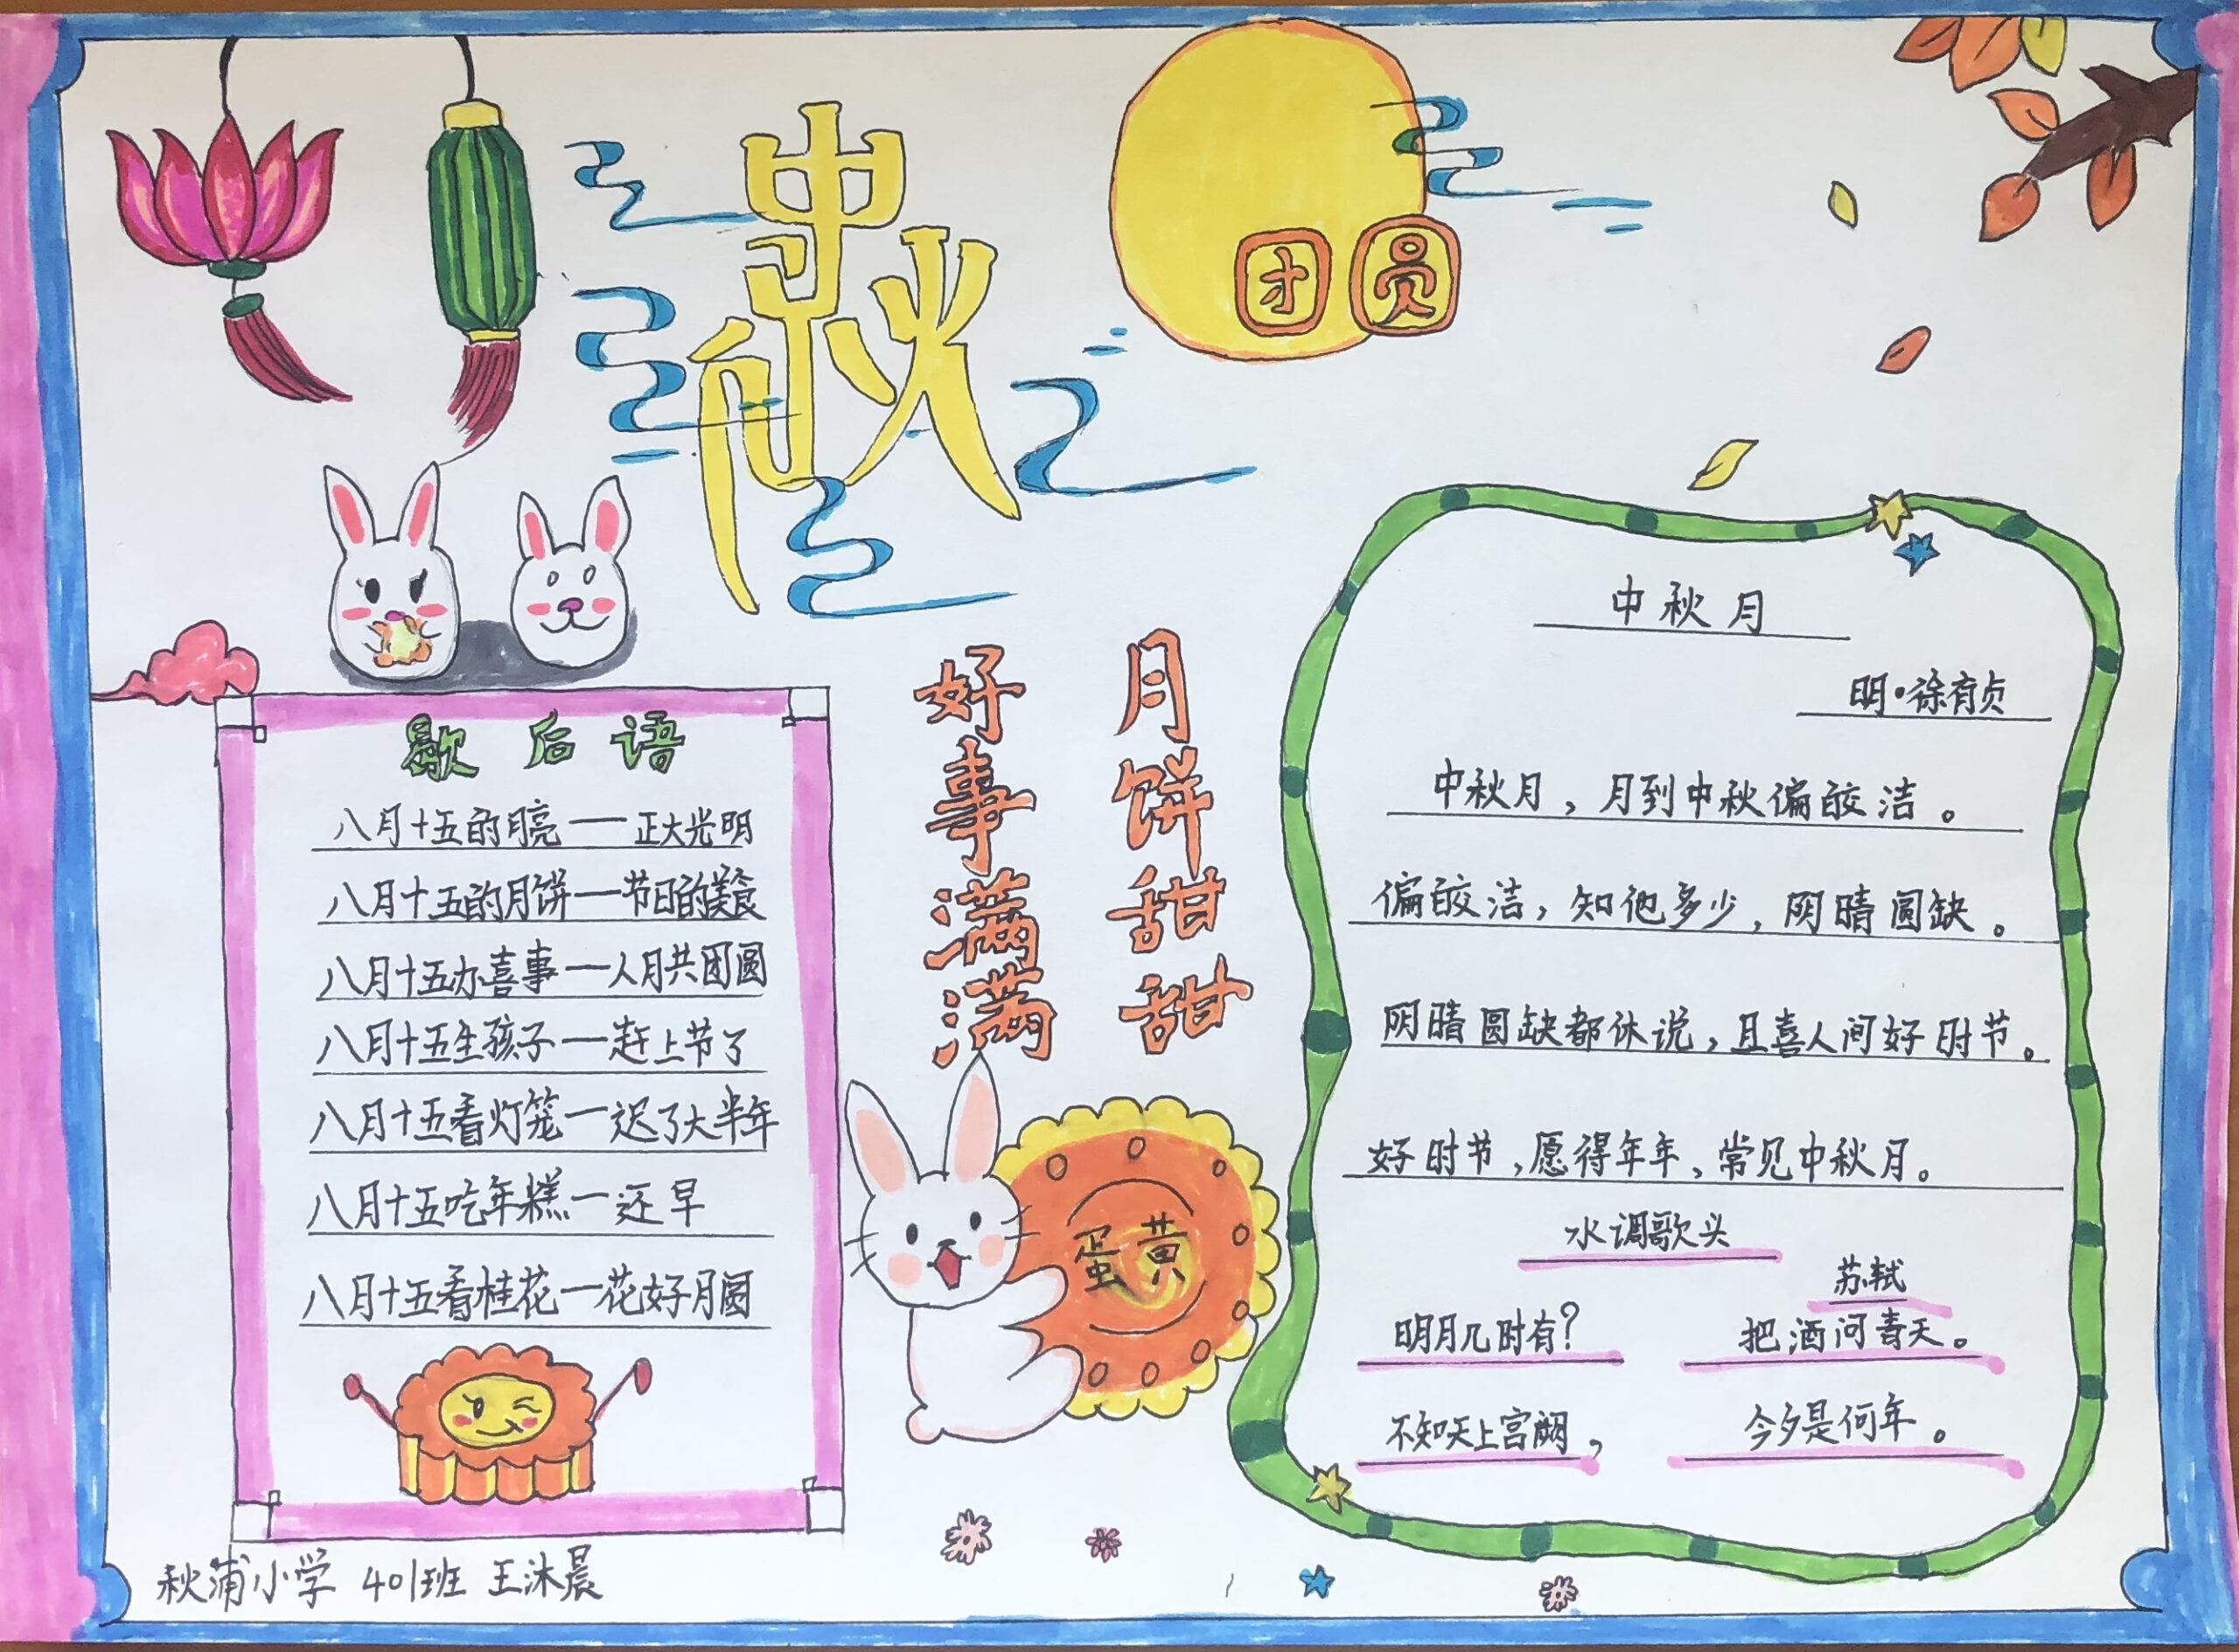 中秋
团圆
歇后语
八月十五的月亮——正大光明
八月十五的月饼—节日的美食
八月十五办喜事—人月共团圆
八月十五生孩子—赶上节了
八月十五看灯笼—迟了大半年
八月十五吃年糕—还早
八月十五看桂花—花好月圆
月饼甜甜
好事满满
蛋黄
中秋月
明·徐有贞
中秋月，月到中秋偏皎洁。
偏皎洁，知他多少，阴晴圆缺。
阴晴圆缺都休说，且喜人间好时节。
好时节，愿得年年，常见中秋月。
水调歌头
苏轼
明月几时有？ 把酒问青天。
不知天上宫阙， 今夕是何年。
秋浦小学 401班 王沐晨